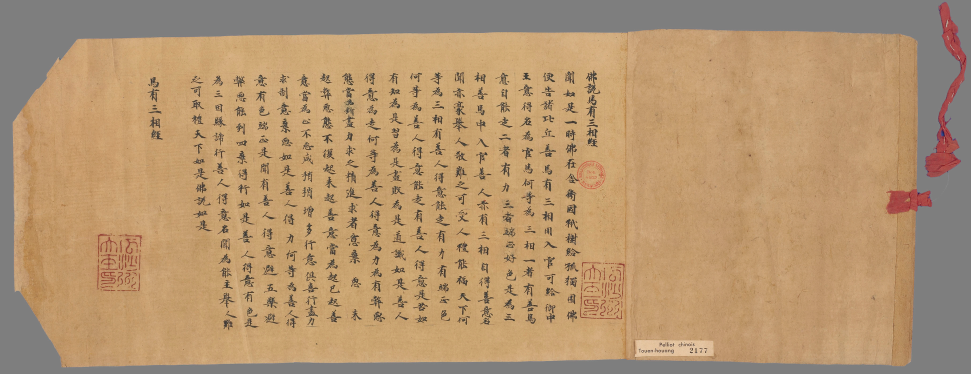 佛說馬有三相經
聞如是一時佛在舍衛國祇樹給孤獨園佛
便告諸比丘善馬有三相用入官可給御中
王意得名為官馬何等為三相一者有善馬
意自能走二者有力三者端正好色是為三
相善馬中入官善人亦有三相自得善意名
聞亦豪舉人敬難之可受人禮能福天下何
等為三相有善人得意能走有力有端正色
何等為善人得意能走有善人得意是苦如
有知為是習為是盡敢為是道識如是善人
得意為走何等為善人得意為力為有弊惡
態當為斷盡力求之精進求者意棄惡未
起弊惡態不復起未起善意當為起已起善
意當為止不忘咸稍稍增多行意俱善行盡力
求制意棄惡如是善人得力何等為善人得
意有色端正是聞有善人得意避五樂避
弊惡能到四棄得行如是善人得意有色是
為三因緣諦行善人得意名聞為能王舉人難
之可取禮天下如是佛說如是
馬有三相經
Pelliot chinois
Touen-houang 2177